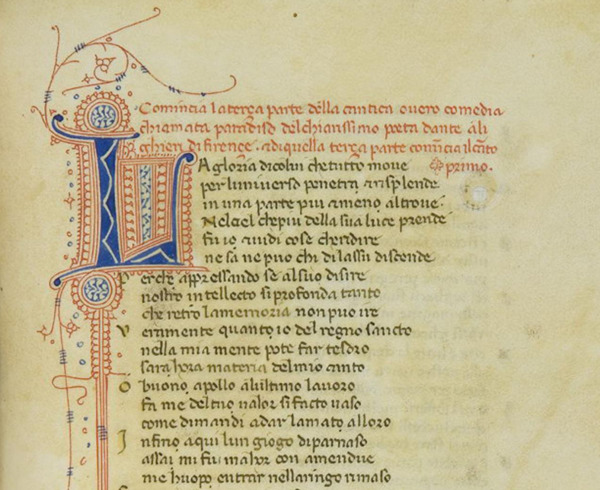 Comincia laterça parte della cantica overo comedia
chiamata paradiso delchiarissimo poeta dante ali
ghieri di firençe . & di quella terça parte comicia ilcāto
primo.
LA gloria di colui che tutto move
per luniverso penetra & risplende
in una parte piu & meno altrove
Nel ciel che piu della sua luce prende
fu io & vidi cose che ridire
ne sa ne puo chi di lassu discende
Perche appressando se al suo disire
nostro intellecto si profonda tanto
che retro la memoria non puo ire
Veramente quanto io del regno sancto
nella mia mente pote far tesoro
sara hora materia del mio canto
O buono apollo alultimo lavoro
fa me del tuo valor si facto vaso
come dimandi a dar lamato alloro
Infino a qui lun giogo di parnaso
assai mi fu ma hor con amendue
me huopo entrar nellaringo rimaso